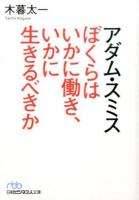 木暮太一
Taichi Kogure
アダム・スミス
ぼくらは
いかに働き、
いかに
生きるべきか
日経ビジネス人文庫